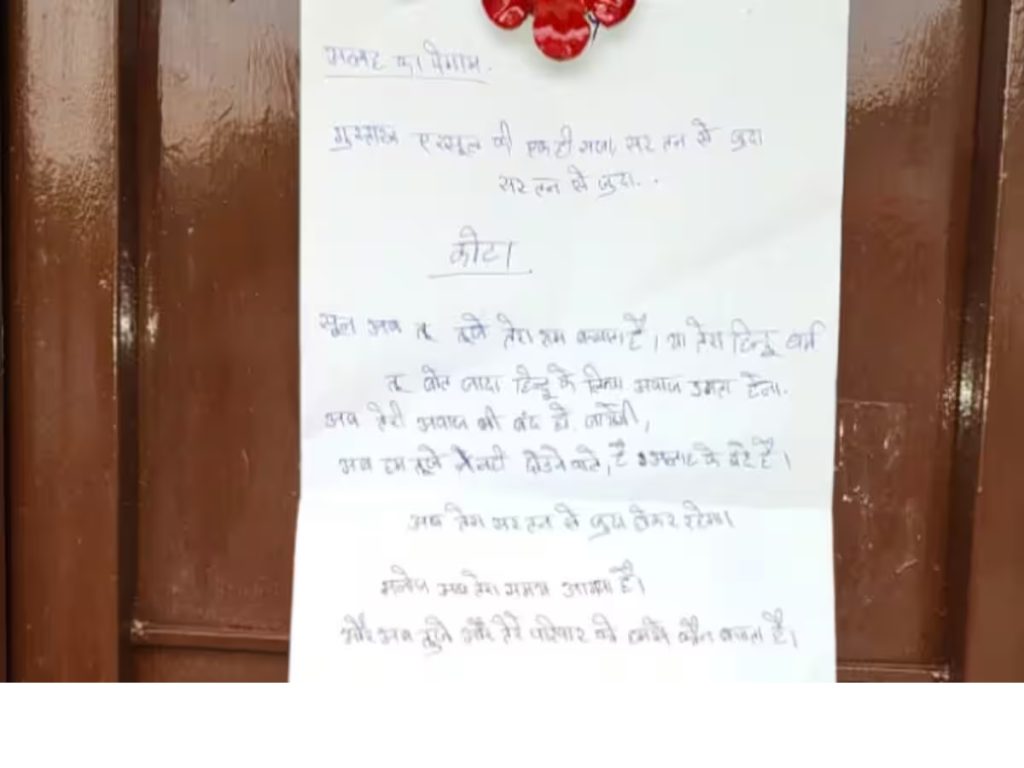 का पैगाम.
गुस्ताख ए रसूल की एक ही सजा, सर तन से जुदा
सर तन से जुदा..
कोटा
सुन अब तू तूझे तेरा राम बचाता है। या तेरा हिन्दू धर्म
तू बोत जादा हिन्दू के लिया अवाज उठाता हेना.
अब तेरी अवाज भी बंद हो जायेगी,
अब हम तूझे नही छोडने वाले, है अल्लाह के बंदे है।
अब तेरा सर तन से जुदा होकर रहेगा
अब तेरा समय आगया है।
और अब तूझे और तेरे परिवार को हमसे कौन बचाता है।